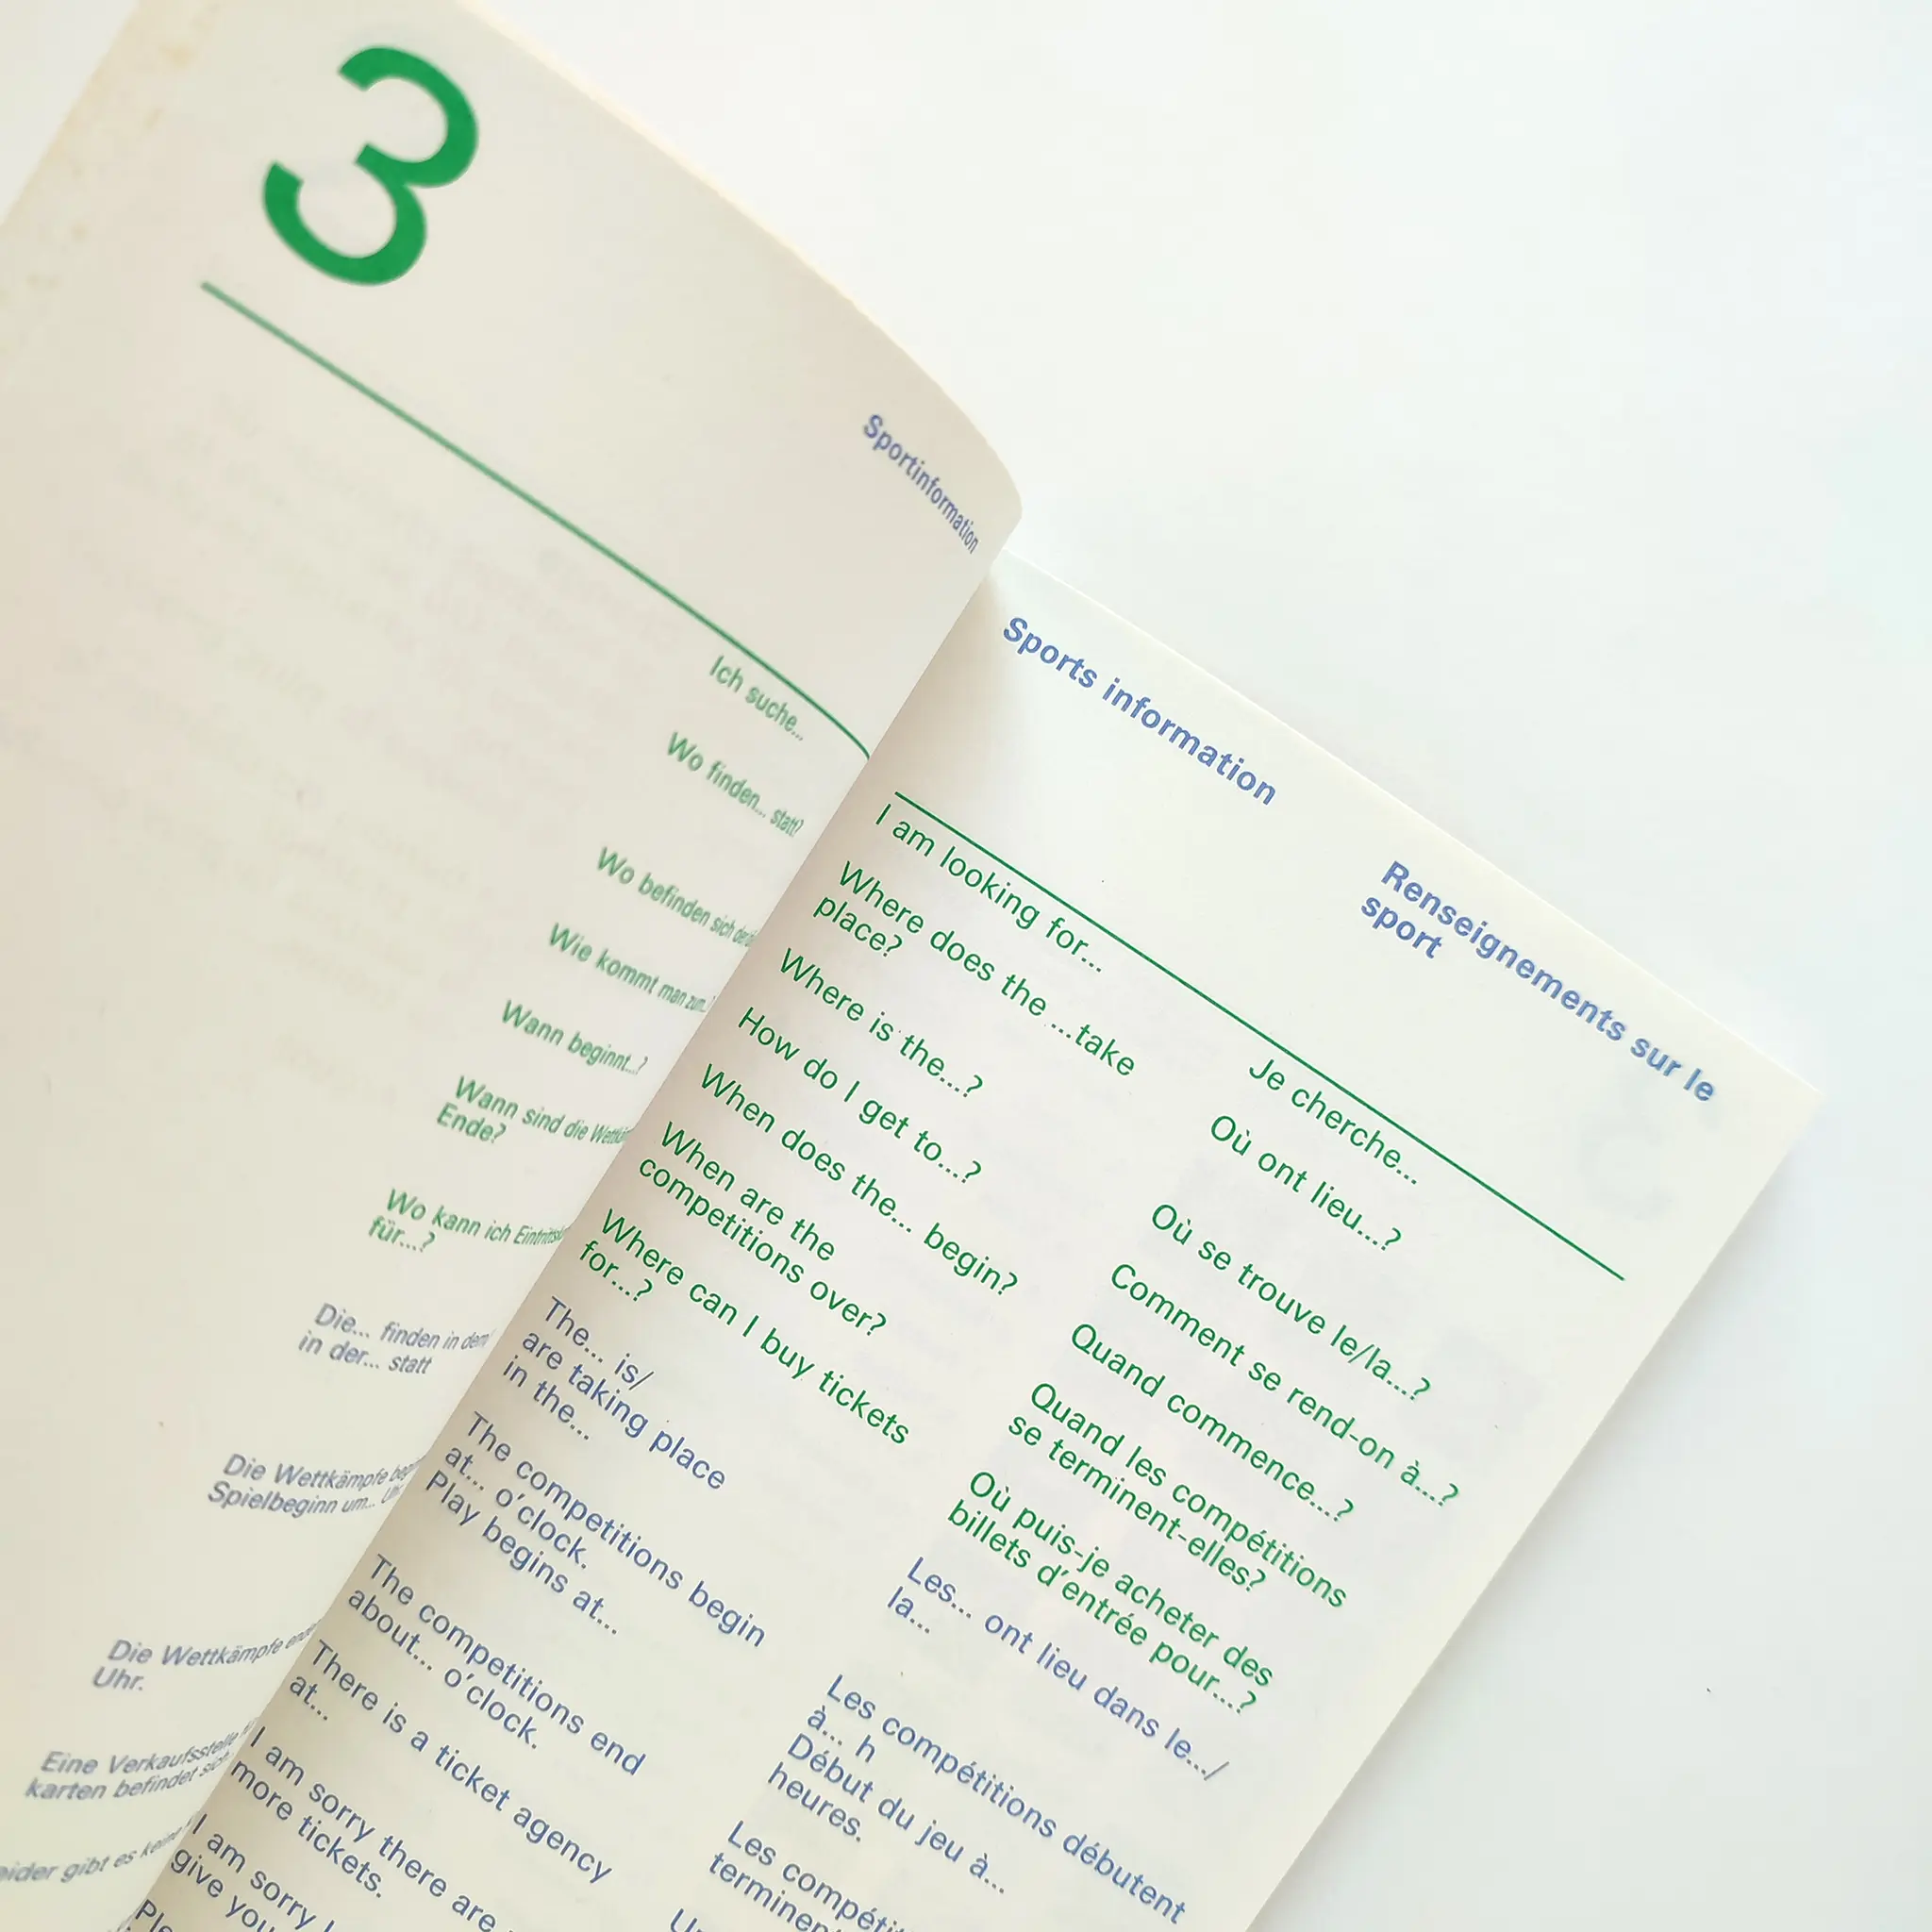 3
Sportinformation
Ich suche...
Wo finden... statt?
Wo befinden sich
Wie kommt man zum...?
Wann beginnt...?
Wann sind die
Ende?
Wo kann ich
für...?
Die... finden in
in der... statt
Die Wettkämpfe
Spielbeginn um...
Die Wettkämpfe
Uhr.
Eine
karten befindet sich
gibt es
Sports information
I am looking for...
Where does the ...take
place?
Where is the...?
How do I get to...?
When does the... begin?
When are the
competitions over?
Where can I buy tickets
for...?
The... is/
are taking place
in the...
The competitions begin
at... o'clock.
Play begins at...
The competitions end
about... o'clock.
There is a ticket agency
at...
I am sorry there are
more tickets.
I am sorry I
give you
Renseignements sur le
sport
Je cherche...
Où ont lieu...?
Où se trouve le/la...?
Comment se rend-on à...?
Quand commence...?
Quand les compétitions
se terminent-elles?
Où puis-je acheter des
billets d'entrée pour...?
Les... ont lieu dans le.../
la...
Les compétitions débutent
à... h
Début du jeu à...
heures.
Les